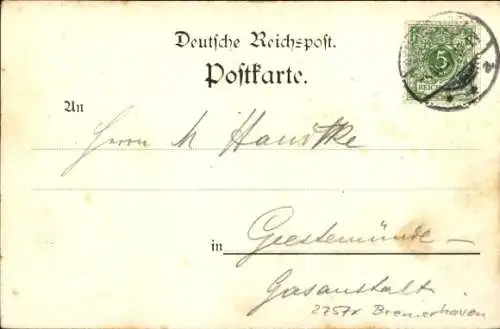 Deutsche Reichspost.
Postkarte.
5
An
Herrn M Hanitke
in Geestemünde –
Gasanstalt.
2757x Bremerhaven